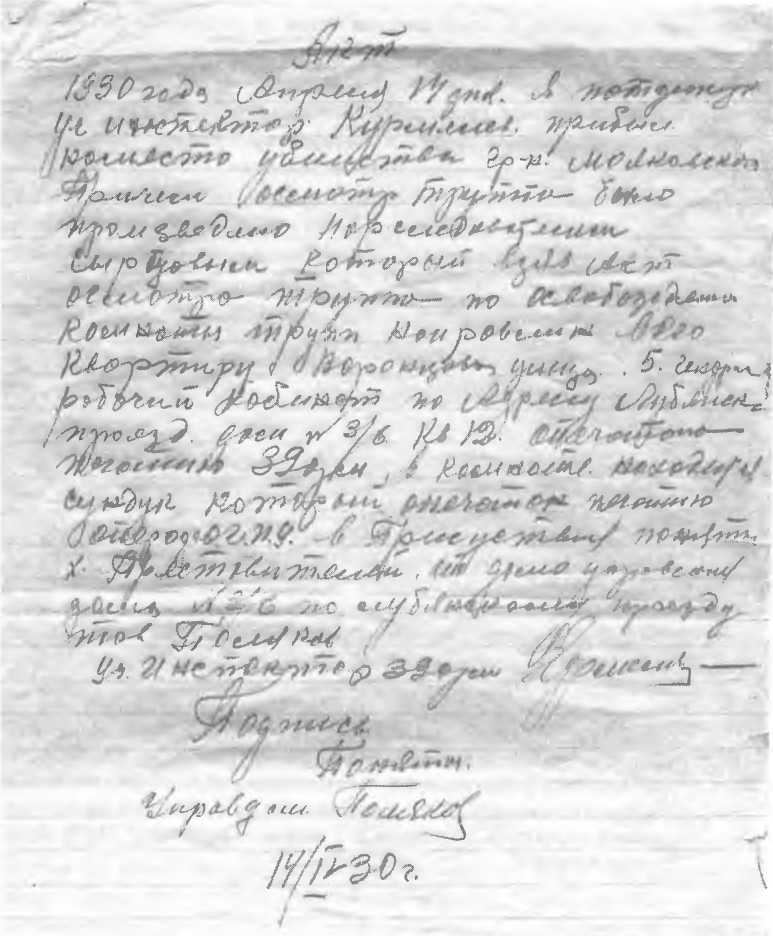 Акт
1930 года Апреля 14 дня. Я
уч инспектор Курмелев. прибыл
на место убийства гр-н. Маяковского
Причем осмотр трупа было
произведено Нарследователем
Сырцовым который взял Акт
осмотра трупа по освобождении
комнаты труп направлен в его
Квартиру Воронцовская улица
рабочий кабинет по Адресу Лубянск.
проезд. дом № 3/6 Кв 12. опечатано
печатию 39 о/м, в комнате находится
сундук который опечатан печатию
в Присутствии понят
х. Представителей, дома
дома № 3/6 по Лубянскому проезду
тов Поляков
Уч. Инспектор 39 о/м Курмелев
Подпись
Понятые.
Управдом Поляков
14/IV 30 г.